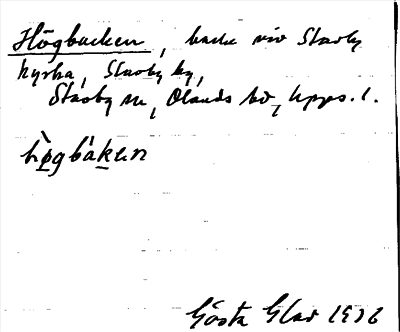 Högbacken, backe vid Stavby
kyrka, Stavby by,
Stavby sn, Olands hd, Upps. l.
hø̀gbákɛn
Gösta Glad 1936